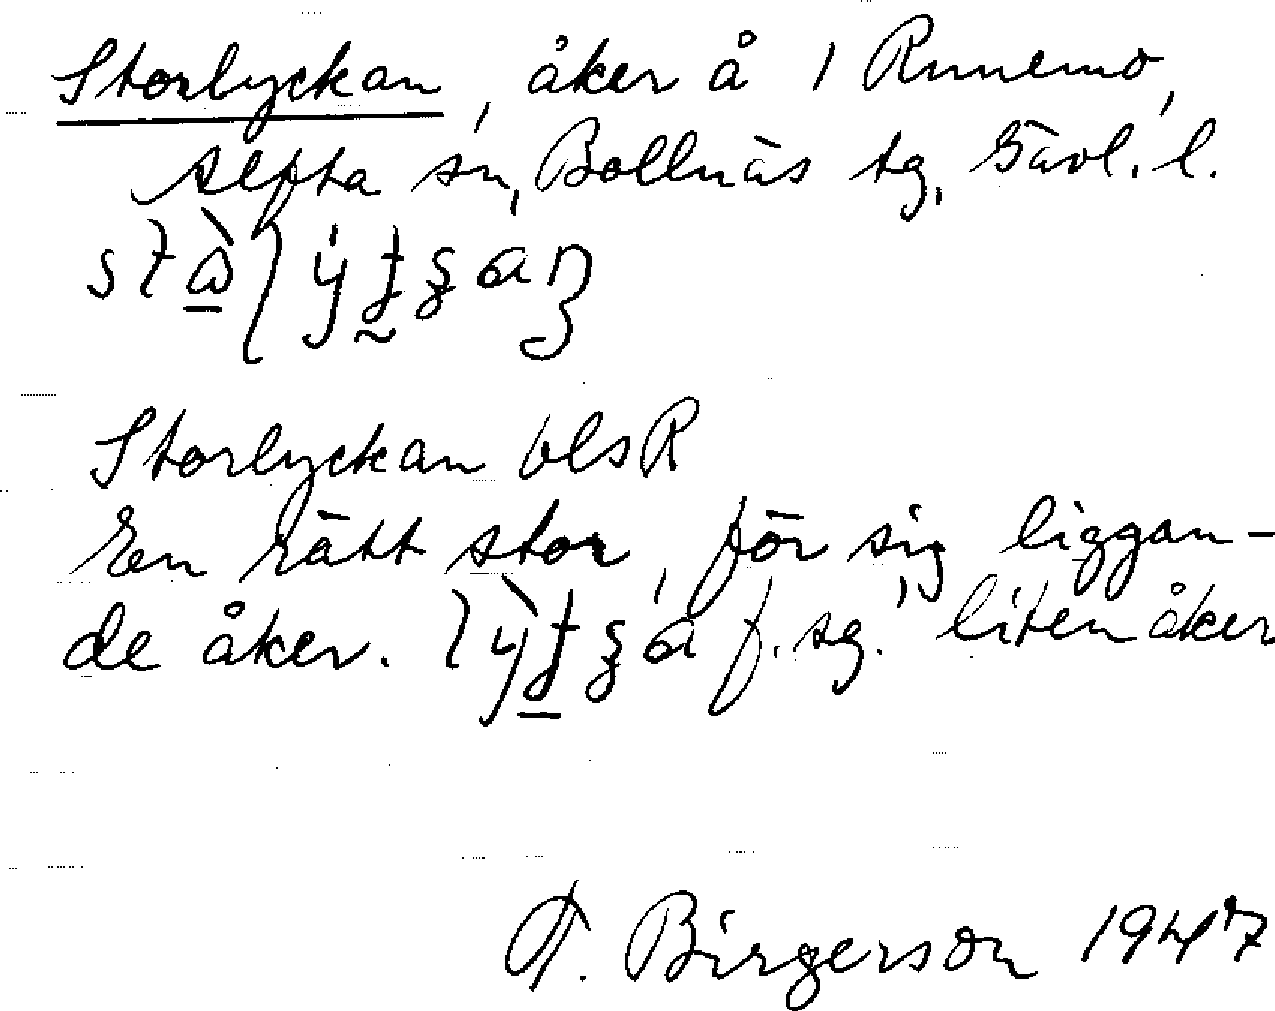 Storlyckan, åker å 1 Runemo,
Alfta sn, Bollnäs tg, Gävl. l.
Storlyckan blsR
En rätt stor, för sig liggan-
de åker. f. sg. liten åker
T. Birgerson 1947